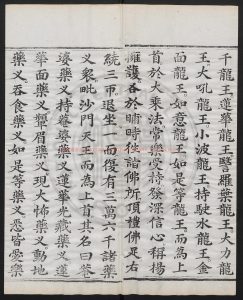 千龍王蓮華龍王瑿羅葉龍王大力龍
王大吼龍王小波龍王持駛水龍王金
面龍王如意龍王如是等龍王而為上
首於大乘法常樂受持發深信心稱揚
擁護各於晡時往詣佛所頂禮佛足右
繞三帀退坐一面復有三萬六千諸藥
叉衆毗沙門天王而為上首其名曰菴
婆藥叉持菴婆藥叉蓮華光藏藥叉蓮
華面藥叉顰眉藥叉現大怖藥叉動地
藥叉吞食藥叉如是等藥叉悉皆愛樂